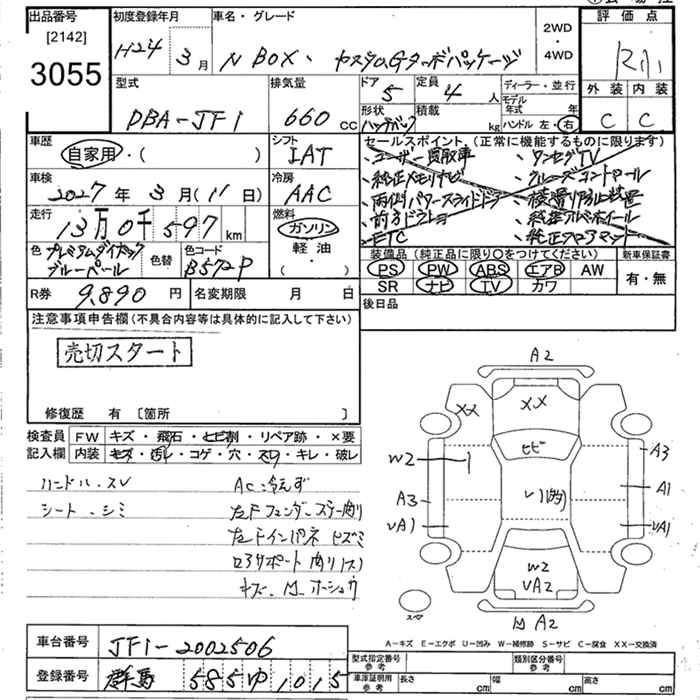 出品番号 [2142] 3055
初度登録年月 H24年 3月
車名・グレード N BOX、カスタムGターボパッケージ
2WD・4WD
評価点 R
型式 DBA-JF1
排気量 660 cc
ドア 5
定員 4人
ディーラー・並行
外装 内装
C C
形状 ハッチバック
積載 kg
モデル年式 年
ハンドル 左・右
車歴 自家用・( )
シフト IAT
セールスポイント (正常に機能するものに限ります)
・ユーザー買取車 ・ワンセグTV
・純正メモリナビ ・クルーズコントロール
・両側パワースライドドア
・純正アルミホイール
・ETC ・純正フロアマット
車検 2027年 3月 (11日)
冷房 AAC
走行 13万0千597 km
燃料 ガソリン・軽油・
色 プレミアムダイナミックブルーパール
色替
色コード B572P
装備品 (純正品に限り○をつけてください)
新車保証書
PS PW ABS エアB AW
有・無
SR ナビ TV カワ
R券 9,890円
名変期限 月 日
後日品
注意事項申告欄 (不具合内容等は具体的に記入して下さい)
売切スタート
修復歴 有 [箇所 ]
検査員記入欄
FW キズ・飛石・ヒビ割・リペア跡・×要
内装 キズ・汚レ・コゲ・穴・スリ・キレ・破レ
ハンドル・スレ AC冷えず
シート・シミ 左Fフェンダーステー曲り
左Fインパネ ヒズミ
ロアサポート曲り(ス)
A2
XX XX
ヒビ
W2 A3
A1
A3
UA1 UA1
W2
UA2
A2
A-キズ E-エクボ U-凹み W-補修跡 S-サビ C-腐食 XX-交換済
車台番号 JF1-2002506
登録番号 群馬 585 ゆ 1015
型式指定番号参考
類別区分番号参考
車庫証明用参考
長さ cm 幅 cm 高さ cm